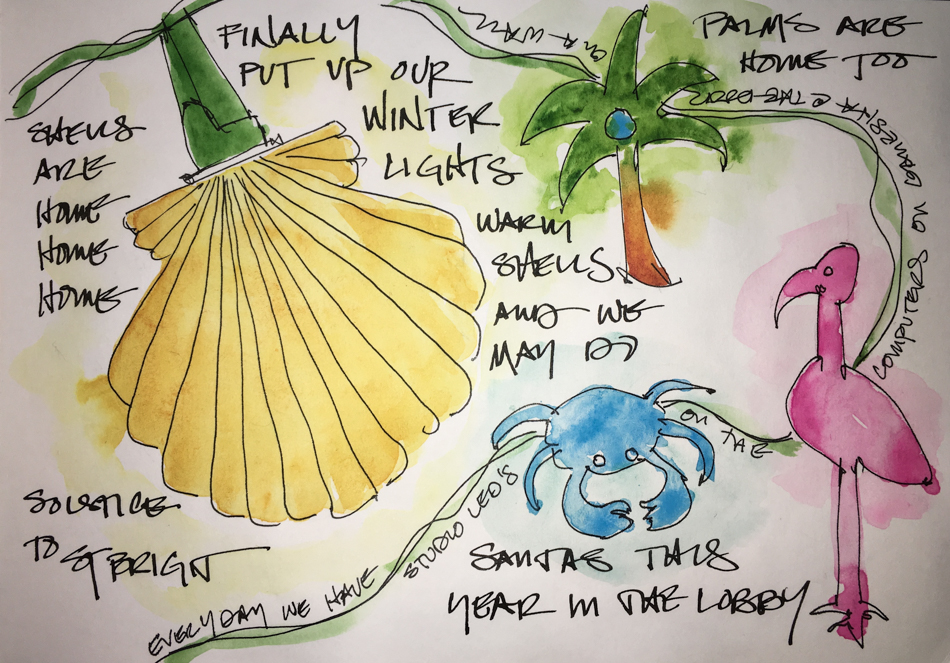 FINALLY
PUT UP OUR
WINTER
LIGHTS
SHELLS
ARE
HOME
HOME
HOME
PALMS ARE
HOME TOO
WARM
SHELLS
AND WE
MAY DO
SANTAS THIS
YEAR IN THE LOBBY
SOLSTICE
TO ST BRIGIT
EVERYDAY WE HAVE
STUDIO LEO'S
ON THE
COMPUTERS ON
ON A WALL